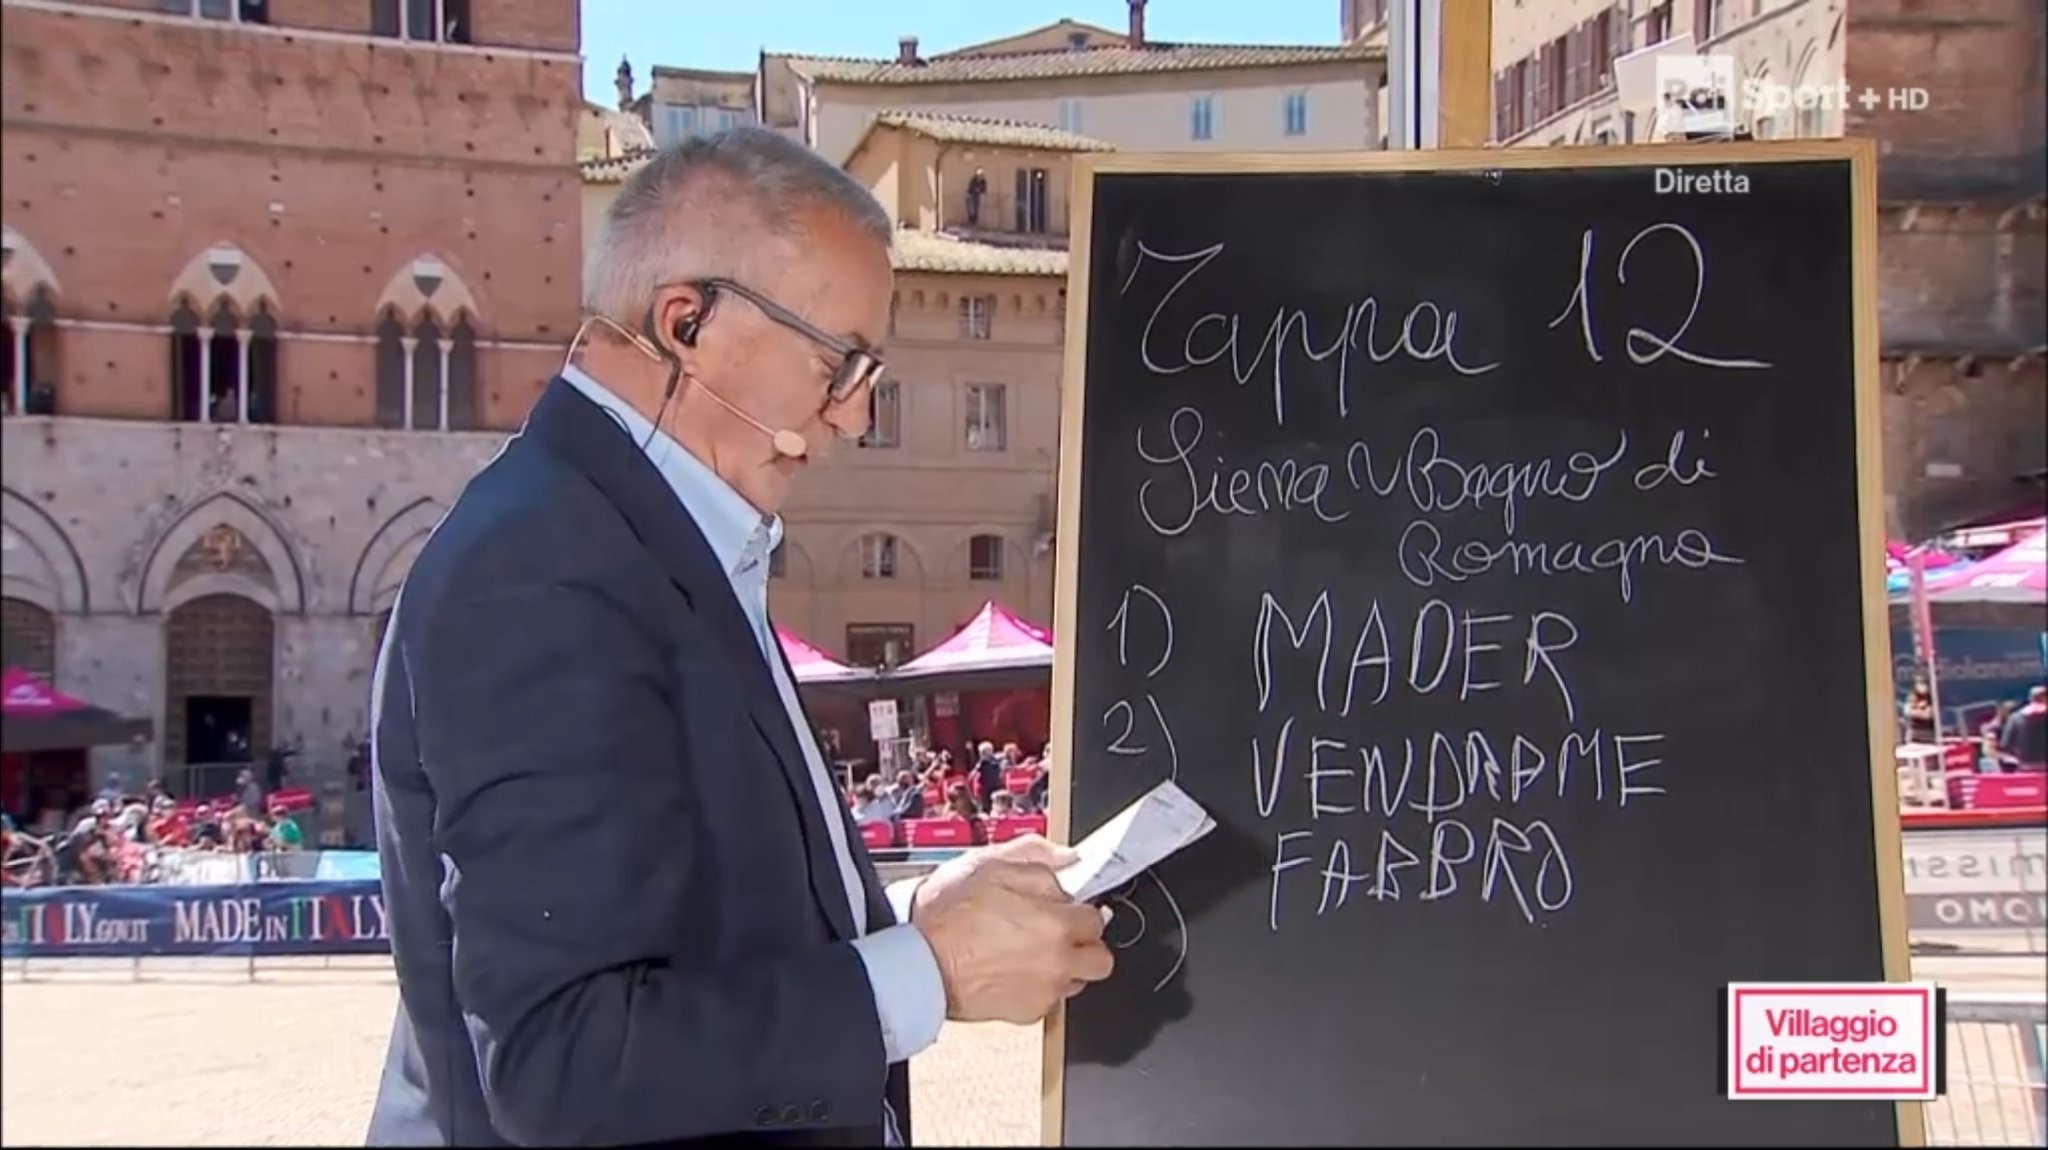 Rai Sport + HD
Diretta
Tappa 12
Siena Bagno di
Romagna
1) MADER
2) VENDRAME
3) FABBRO
ITALY.GOV.IT MADE IN ITALY
Villaggio
di partenza